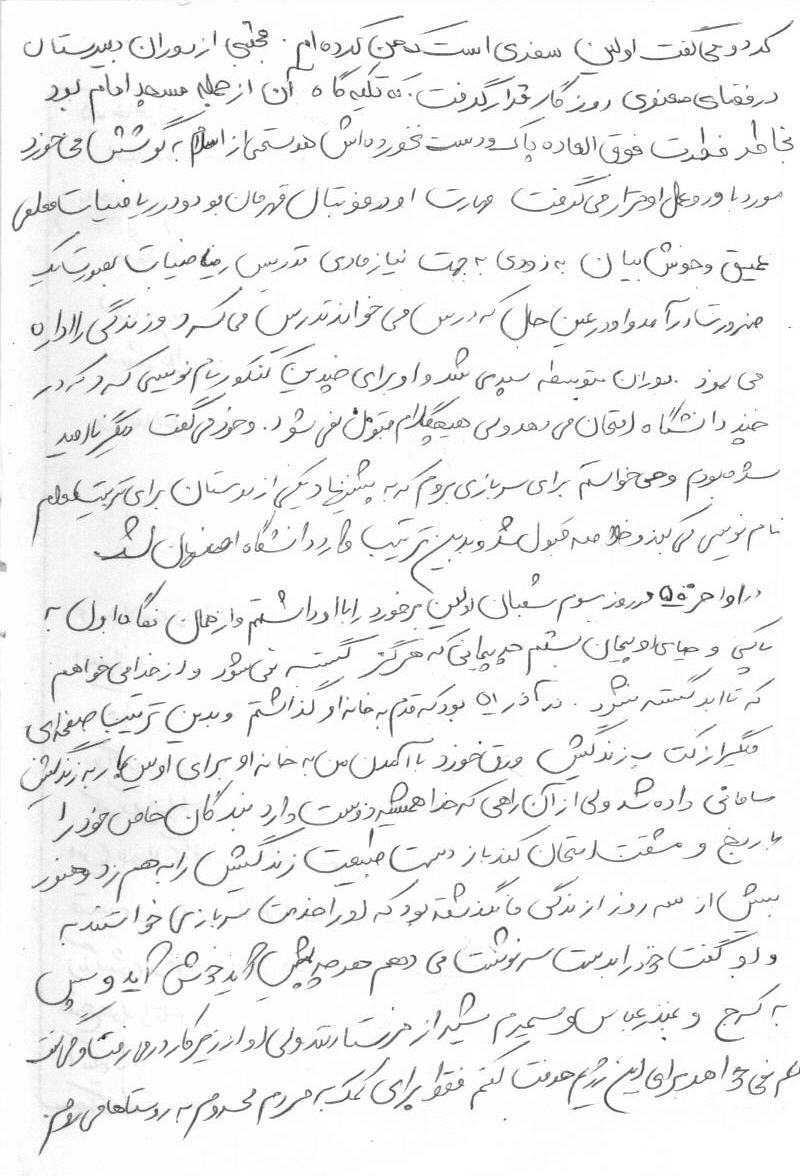 کرد و می گفت اولین سفری است که من کرده ام. مجتبی از دوران دبیرستان
در فضای معنوی روزگار قرار گرفت. که تکیه گاه آن از جمله مسجد امام بود
بخاطر فطرت فوق العاده پاک و دست نخورده اش هر سخنی از اسلام به گوشش می خورد
مورد باور و عمل او قرار می گرفت مهارت او در فوتبال قهرمان بود و در ریاضیات معلمی
عمیق و خوش بیان به زودی به جهت نیاز مادی تدریس ریاضیات بصورت یک
ضرورت درآمد و او در عین حال که درس می خواند تدریس می کند و زندگی را اداره
می نمود. دوران متوسطه سپری شد و او برای چندین کنکور نام نویسی کرد که در
چند دانشگاه امتحان می دهد ولی هیچکدام قبول نمی شود. و خود می گفت دیگر ناامید
شده بودم و می خواستم برای سربازی بروم که به پیشنهاد یکی از دوستان برای تربیت معلم
نام نویسی می کند و خلاصه قبول شد و بدین ترتیب وارد دانشگاه اصفهان شد.
در اواخر ۵۰ در روز سوم شعبان اولین برخورد را با او داشتم و از همان نگاه اول به
پاکی و حیای او پیمان بستم چه پیمانی که هرگز گسسته نمی شود و از خدا می خواهم
که تا ابد گسسته نشود. در آذر ۵۱ بود که قدم به خانه او گذاشتم و بدین ترتیب صفحه ای
دیگر از کتاب زندگیش ورق خورد با آمدن من به خانه او برای اولین بار به زندگیش
سامانی داده شد ولی از آن راهی که خدا همیشه دوست دارد بندگان خاص خود را
با رنج و مشقت امتحان کند باز دست طبیعت زندگیش را به هم زد و هنوز
بیش از سه روز از زندگی ما نگذشته بود که او را خدمت سربازی خواستند به
و او گفت خود را بدست سرنوشت می دهم هر چه پیش آید خوش آید و سپس
به کرج و بندرعباس و شیراز فرستادند ولی او از زیر کار در می رفت و می گفت
دلم نمی خواهد برای این رژیم خدمت کنم فقط برای کمک به مردم محروم به روستاها می روم.